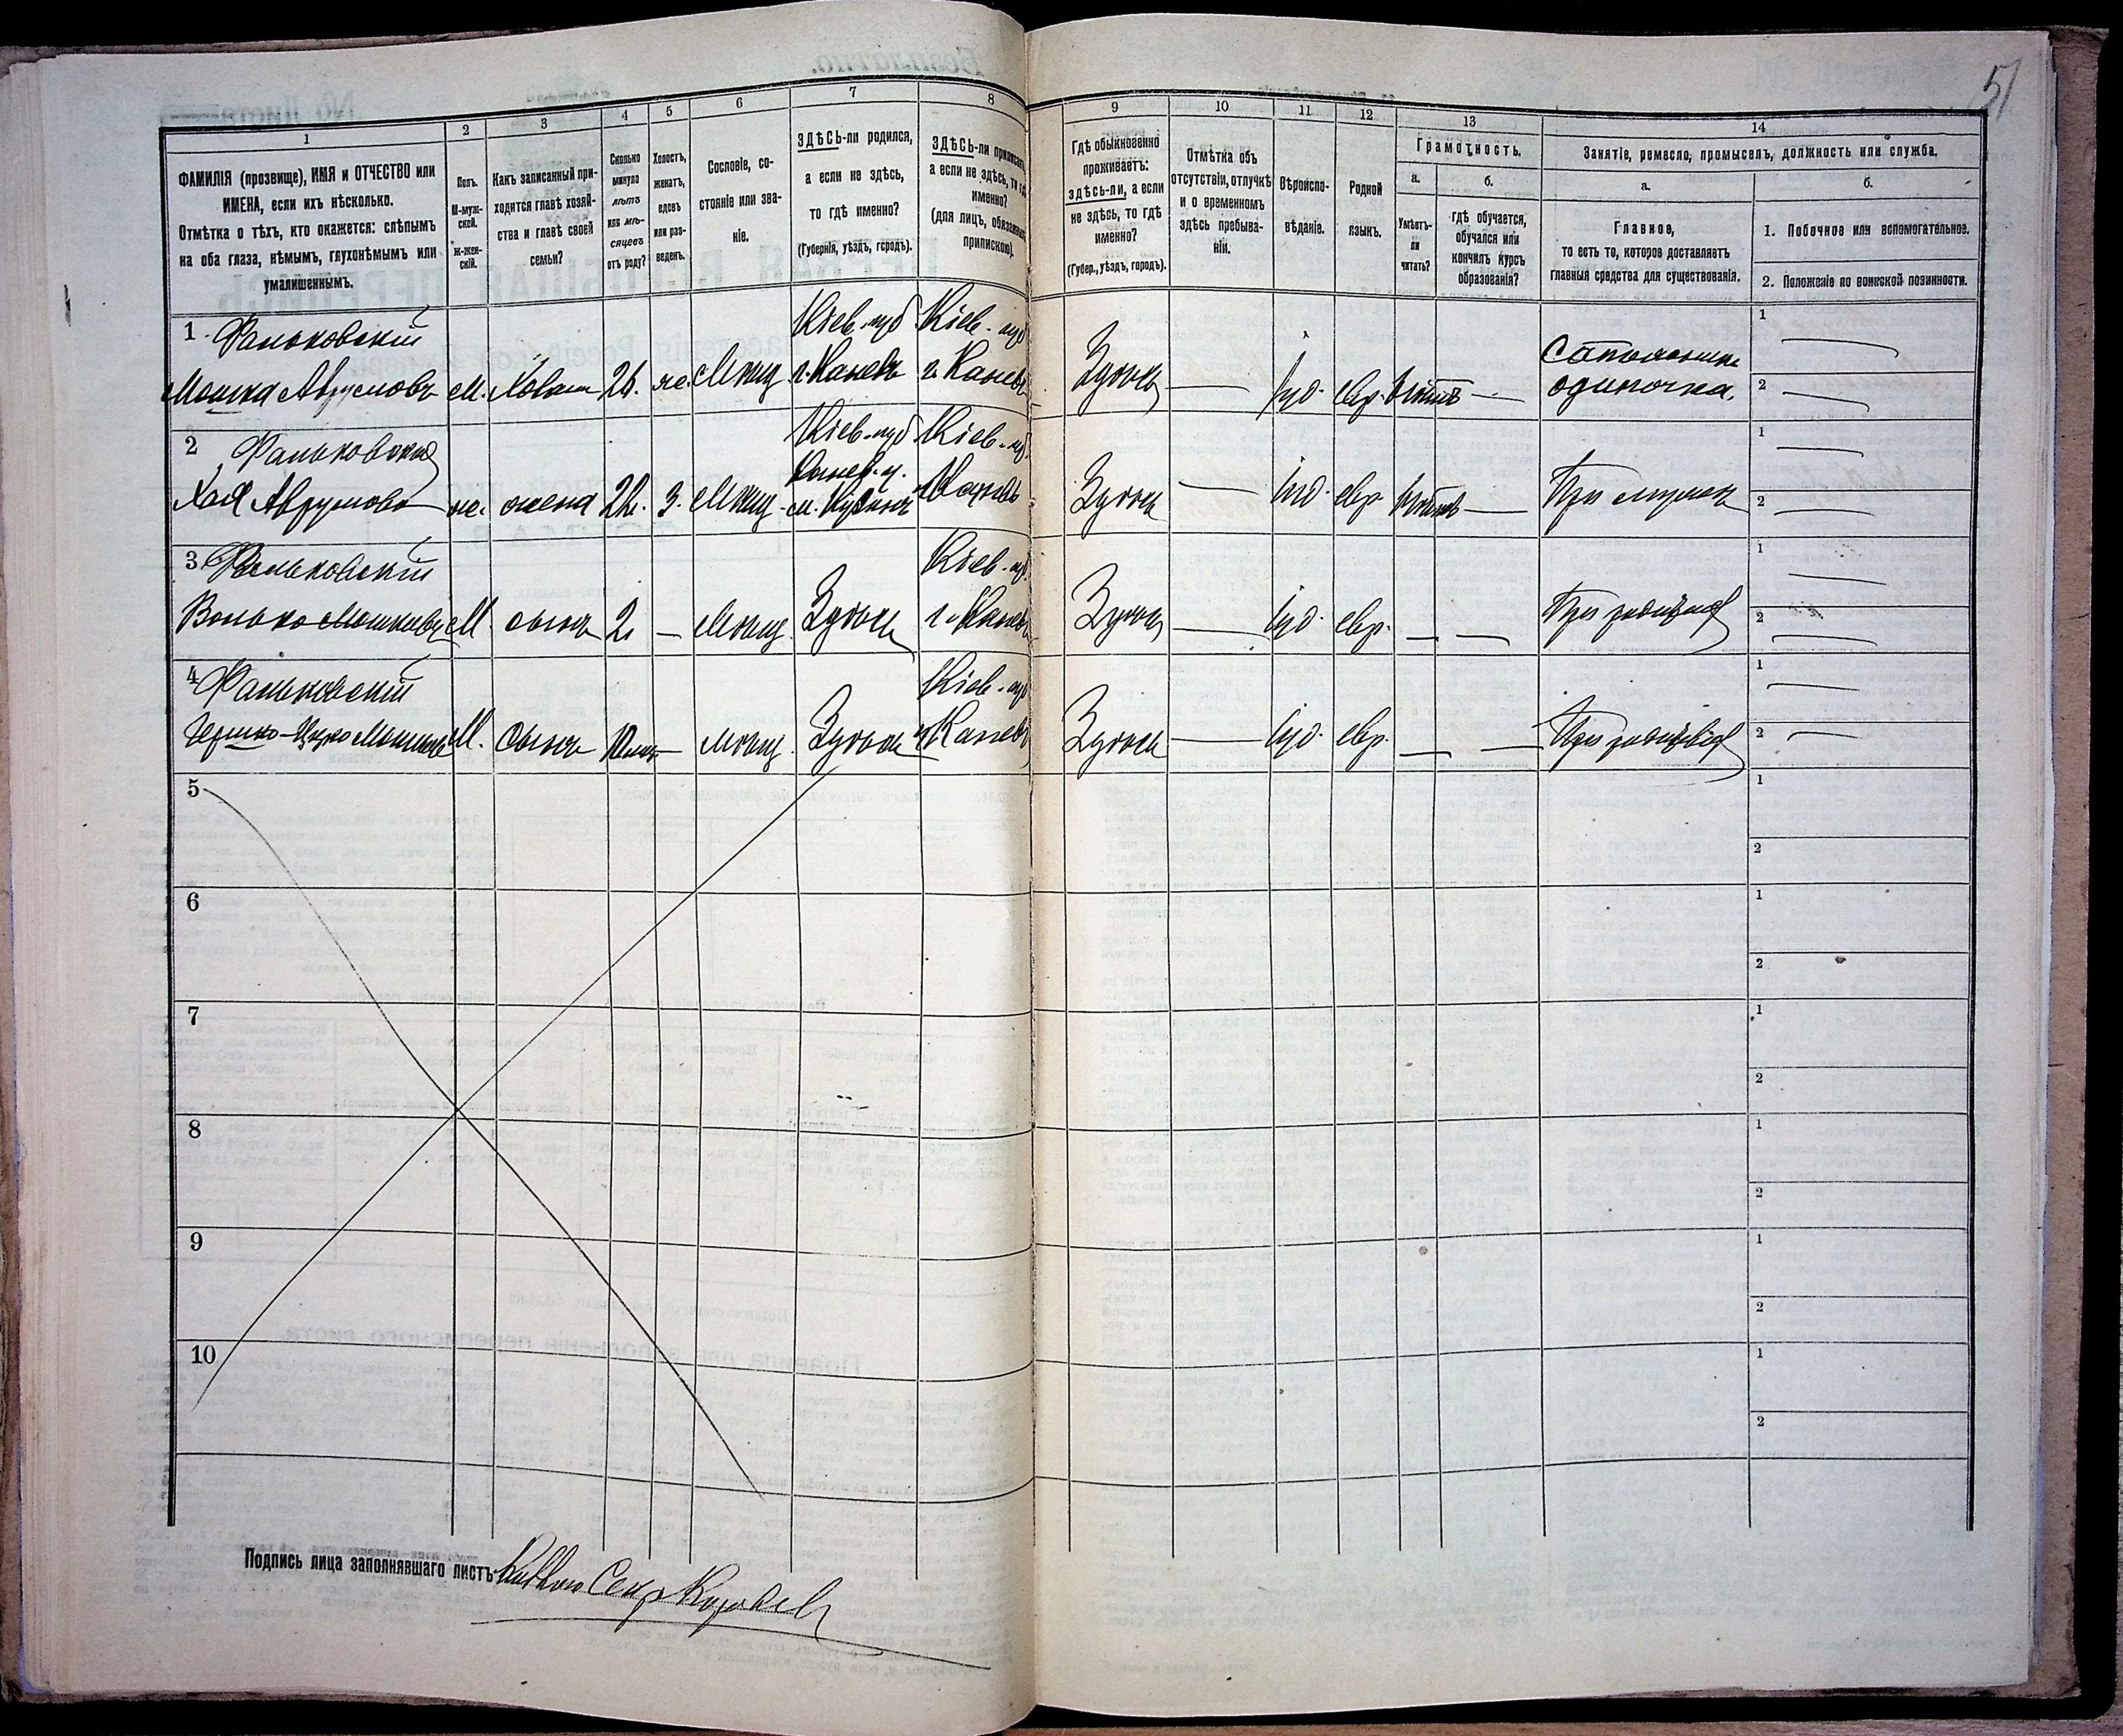 51
1 2 3 4 5 6 7 8 9 10 11 12 13 14
ФАМИЛІЯ (прозвище), ИМЯ и ОТЧЕСТВО или
ИМЕНА, если ихъ нѣсколько.
Отмѣтка о тѣхъ, кто окажется: слѣпымъ
на оба глаза, нѣмымъ, глухонѣмымъ или
умалишеннымъ.
Полъ.
М-муж-
ской.
ж-жен-
скій.
Какъ записанный при-
ходится главѣ хозяй-
ства и главѣ своей
семьи?
Сколько
минуло
лѣтъ
или мѣ-
сяцевъ
отъ роду?
Холостъ,
женатъ,
вдовъ
или раз-
веденъ.
Сословіе, со-
стояніе или зва-
ніе.
ЗДѢСЬ-ли родился,
а если не здѣсь,
то гдѣ именно?
(Губернія, уѣздъ, городъ).
ЗДѢСЬ-ли приписанъ,
а если не здѣсь, то гдѣ
именно?
(для лицъ, обязанныхъ
припискою).
Гдѣ обыкновенно
проживаетъ:
здѣсь-ли, а если
не здѣсь, то гдѣ
именно?
(Губер., уѣздъ, городъ).
Отмѣтка объ
отсутствіи, отлучкѣ
и о временномъ
здѣсь пребыва-
ніи.
Вѣроиспо-
вѣданіе.
Родной
языкъ.
Грамотность.
а.
Умѣетъ-
ли
читать?
б.
гдѣ обучается,
обучался или
кончилъ курсъ
образованія?
Занятіе, ремесло, промыселъ, должность или служба.
а.
Главное,
то есть то, которое доставляетъ
главныя средства для существованія.
б.
1. Побочное или вспомогательное.
2. Положеніе по воинской повинности.
1 Фаньковскій Кіев. губ. Кіев. губ. Сапожникъ 1
Мошка Аврумовъ М. Хозяинъ 26. же. Мѣщ. г. Каневъ г. Каневъ Здѣсь Іуд. евр. одиночка. 2
2 Фаньковская Кіев. губ. Кіев. губ. 1
Хая Аврумова же. жена 22. З. Мѣщ. Канев. у. м. Каневъ Здѣсь Іуд. евр. При мужѣ 2
3 Фаньковскій Кіев. губ. 1
Волько Мошковъ М. сынъ 2. Мѣщ. Здѣсь г. Каневъ Здѣсь Іуд. евр. При родителяхъ 2
4 Фаньковскій Кіев. губ. 1
Гершко-Ицко Мошковъ М. Сынъ мѣщ. Здѣсь г. Каневъ Здѣсь Іуд. евр. При родителяхъ 2
5 1
2
6 1
2
7 1
2
8 1
2
9 1
2
10 1
2
Подпись лица заполнявшаго листъ